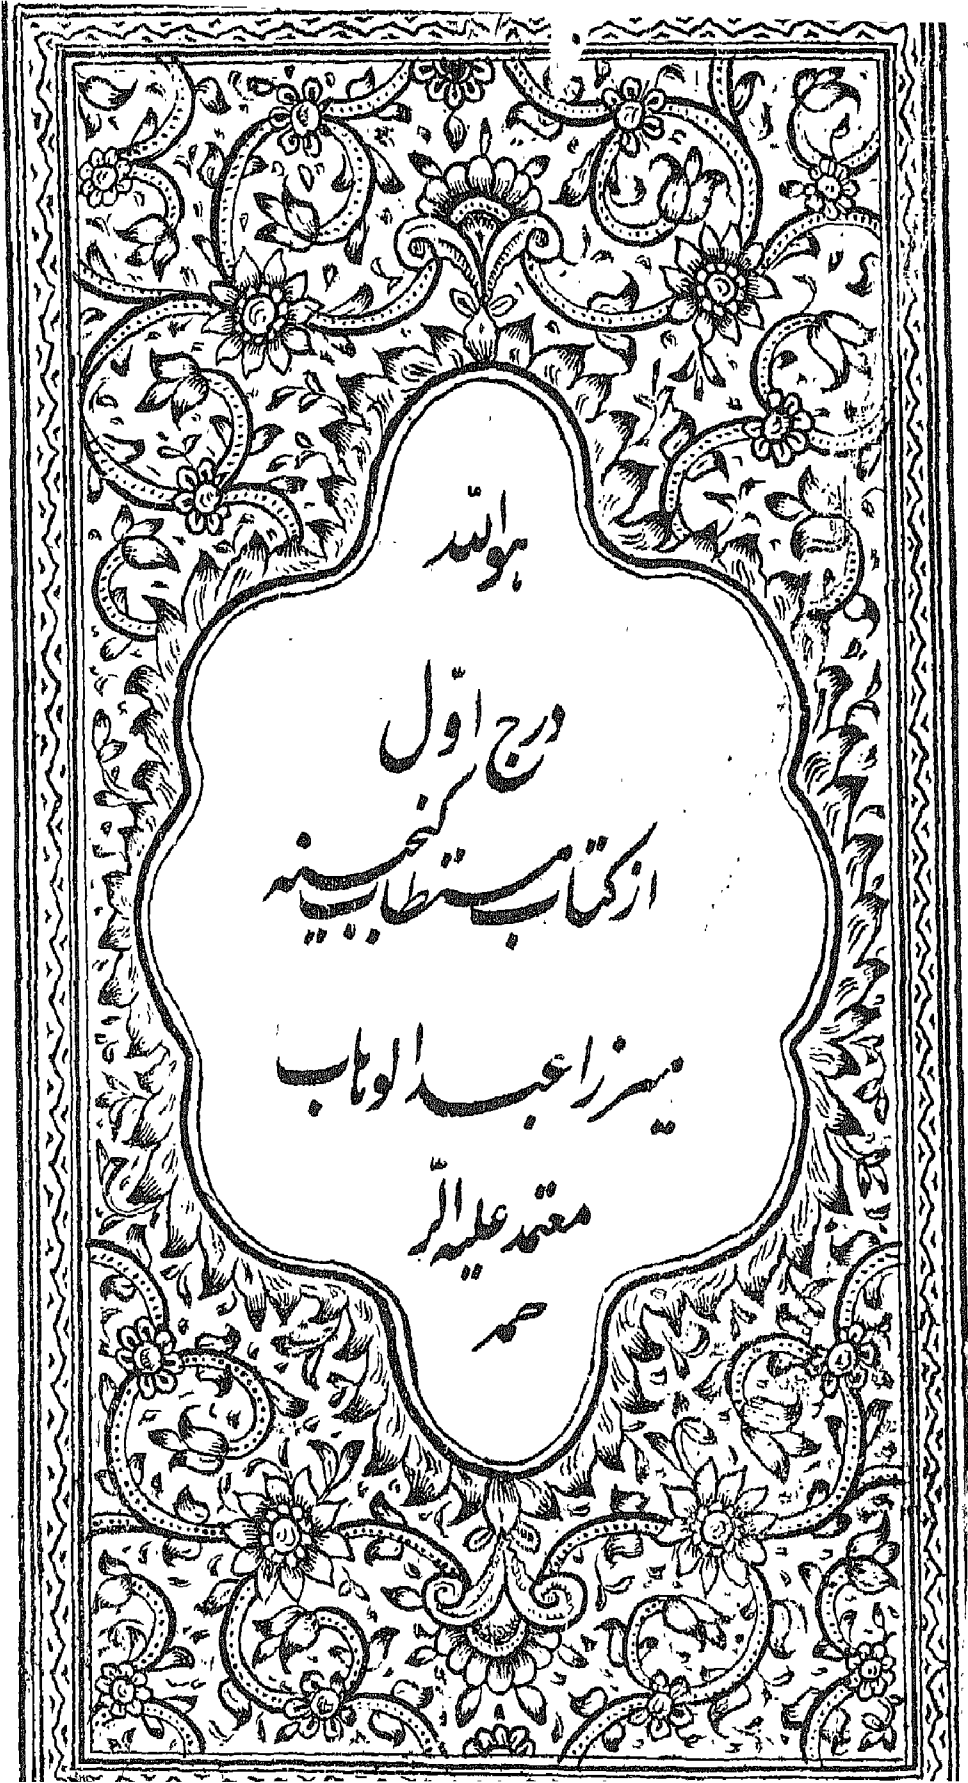 هو الله
درج اوّل
از کتاب مستطاب گنجینه
میرزا عبدالوهاب
معتمد علیه الرّ
حمه